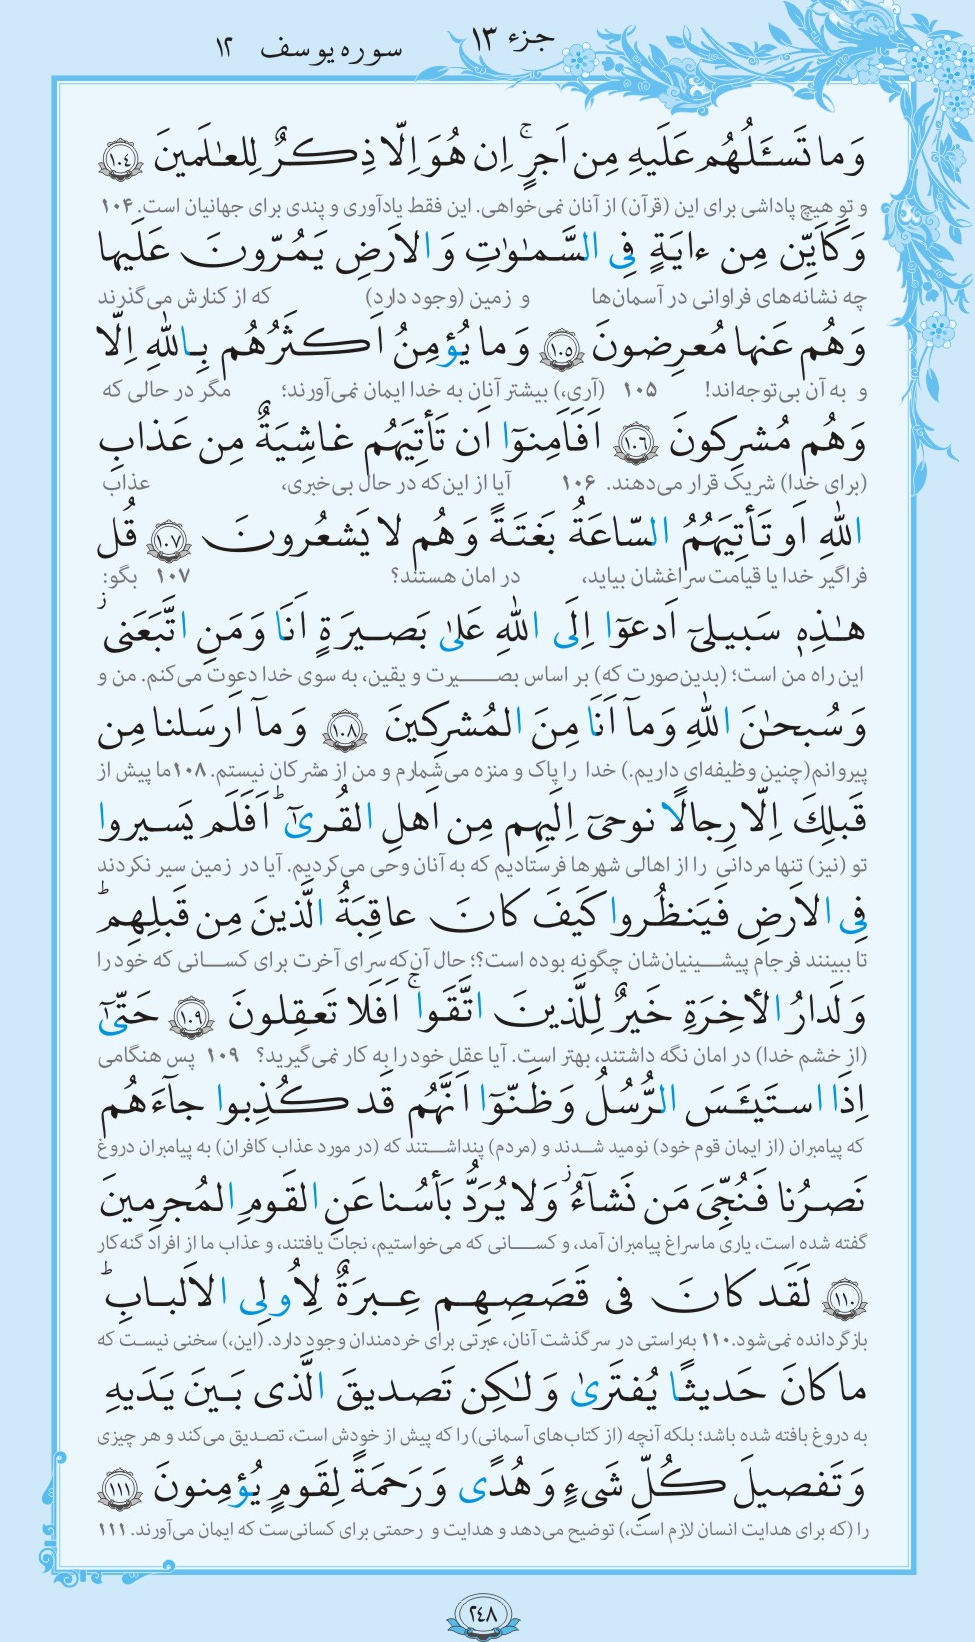 جزء ۱۳
سوره یوسف ۱۲
وَ ما تَسـَٔلُهُم عَلَيهِ مِن اَجرٍ ۚ اِن هُوَ اِلّا ذِكـرٌ لِلعـٰلَمينَ ﴿١٠٤﴾
و تو هیچ پاداشی برای این (قرآن) از آنان نمی‌خواهی. این فقط یادآوری و پندی برای جهانیان است. ۱۰۴
وَ كَاَيِّن مِن ءايَةٍ فِى السَّمـٰوٰتِ وَ الاَرضِ يَمُرّونَ عَلَيها
چه نشانه‌های فراوانی در آسمان‌ها و زمین (وجود دارد) که از کنارش می‌گذرند
وَ هُم عَنها مُعرِضونَ ﴿١٠٥﴾ وَ ما يُؤمِنُ اَكثَرُهُم بِاللّٰهِ اِلّا
و به آن بی‌توجه‌اند! ۱۰۵ (آری،) بیشتر آنان به خدا ایمان نمی‌آورند؛ مگر در حالی که
وَ هُم مُشرِكونَ ﴿١٠٦﴾ اَفَاَمِنوٓا اَن تَأتِيَهُم غاشِيَةٌ مِن عَذابِ
(برای خدا) شریک قرار می‌دهند. ۱۰۶ آیا از این‌که در حال بی‌خبری، عذاب
اللّٰهِ اَو تَأتِيَهُمُ السّاعَةُ بَغتَةً وَ هُم لا يَشعُرونَ ﴿١٠٧﴾ قُل
فراگیر خدا یا قیامت سراغشان بیاید، در امان هستند؟ ۱۰۷ بگو:
هـٰذِهٖ سَبيلىٓ اَدعوٓا اِلَى اللّٰهِ عَلىٰ بَصيرَةٍ اَنَا وَ مَنِ اتَّبَعَنى ز
این راه من است؛ (بدین‌صورت که) بر اساس بصیرت و یقین، به سوی خدا دعوت می‌کنم. من و
وَ سُبحـٰنَ اللّٰهِ وَ مآ اَنَا مِنَ المُشرِكينَ ﴿١٠٨﴾ وَ مآ اَرسَلنا مِن
پیروانم(چنین وظیفه‌ای داریم.) خدا را پاک و منزه می‌شمارم و من از مشرکان نیستم. ۱۰۸ ما پیش از
قَبلِكَ اِلّا رِجالًا نوحىٓ اِلَيهِم مِن اَهلِ القُرىٰٓ ط اَفَلَم يَسيروا
تو (نیز) تنها مردانی را از اهالی شهرها فرستادیم که به آنان وحی می‌کردیم. آیا در زمین سیر نکردند
فِى الاَرضِ فَيَنظُروا كَيفَ كانَ عاقِبَةُ الَّذينَ مِن قَبلِهِم ط
تا ببینند فرجام پیشینیان‌شان چگونه بوده است؟؛ حال آن‌که سرای آخرت برای کسانی که خود را
وَ لَدارُ الأخِرَةِ خَيرٌ لِلَّذينَ اتَّقَوا ۚ اَفَلا تَعقِلونَ ﴿١٠٩﴾ حَتّىٰٓ
(از خشم خدا) در امان نگه داشتند، بهتر است. آیا عقل خود را به کار نمی‌گیرید؟ ۱۰۹ پس هنگامی
اِذَا استَيـَٔسَ الرُّسُلُ وَ ظَنّوٓا اَنَّهُم قَد كُذِبوا جآءَهُم
که پیامبران (از ایمان قوم خود) نومید شدند و (مردم) پنداشتند که (در مورد عذاب کافران) به پیامبران دروغ
نَصرُنا فَنُجِّىَ مَن نَشآءُ ز وَ لا يُرَدُّ بَأسُنا عَنِ القَومِ المُجرِمينَ
گفته شده است، یاری ما سراغ پیامبران آمد، و کسانی که می‌خواستیم، نجات یافتند، و عذاب ما از افراد گنه‌کار
﴿١١٠﴾ لَقَد كانَ فى قَصَصِهِم عِبرَةٌ لِاُولِى الاَلبـابِ ط
بازگردانده نمی‌شود. ۱۱۰ به‌راستی در سرگذشت آنان، عبرتی برای خردمندان وجود دارد. (این،) سخنی نیست که
ما كانَ حَديثًا يُفتَرىٰ وَ لـٰكِن تَصديقَ الَّذى بَينَ يَدَيهِ
به دروغ بافته شده باشد؛ بلکه آنچه (از کتاب‌های آسمانی) را که پیش از خودش است، تصدیق می‌کند و هر چیزی
وَ تَفصيلَ كُلِّ شَىءٍ وَ هُدًى وَ رَحمَةً لِقَومٍ يُؤمِنونَ ﴿١١١﴾
را (که برای هدایت انسان لازم است،) توضیح می‌دهد و هدایت و رحمتی برای کسانی‌ست که ایمان می‌آورند. ۱۱۱
٢٤٨